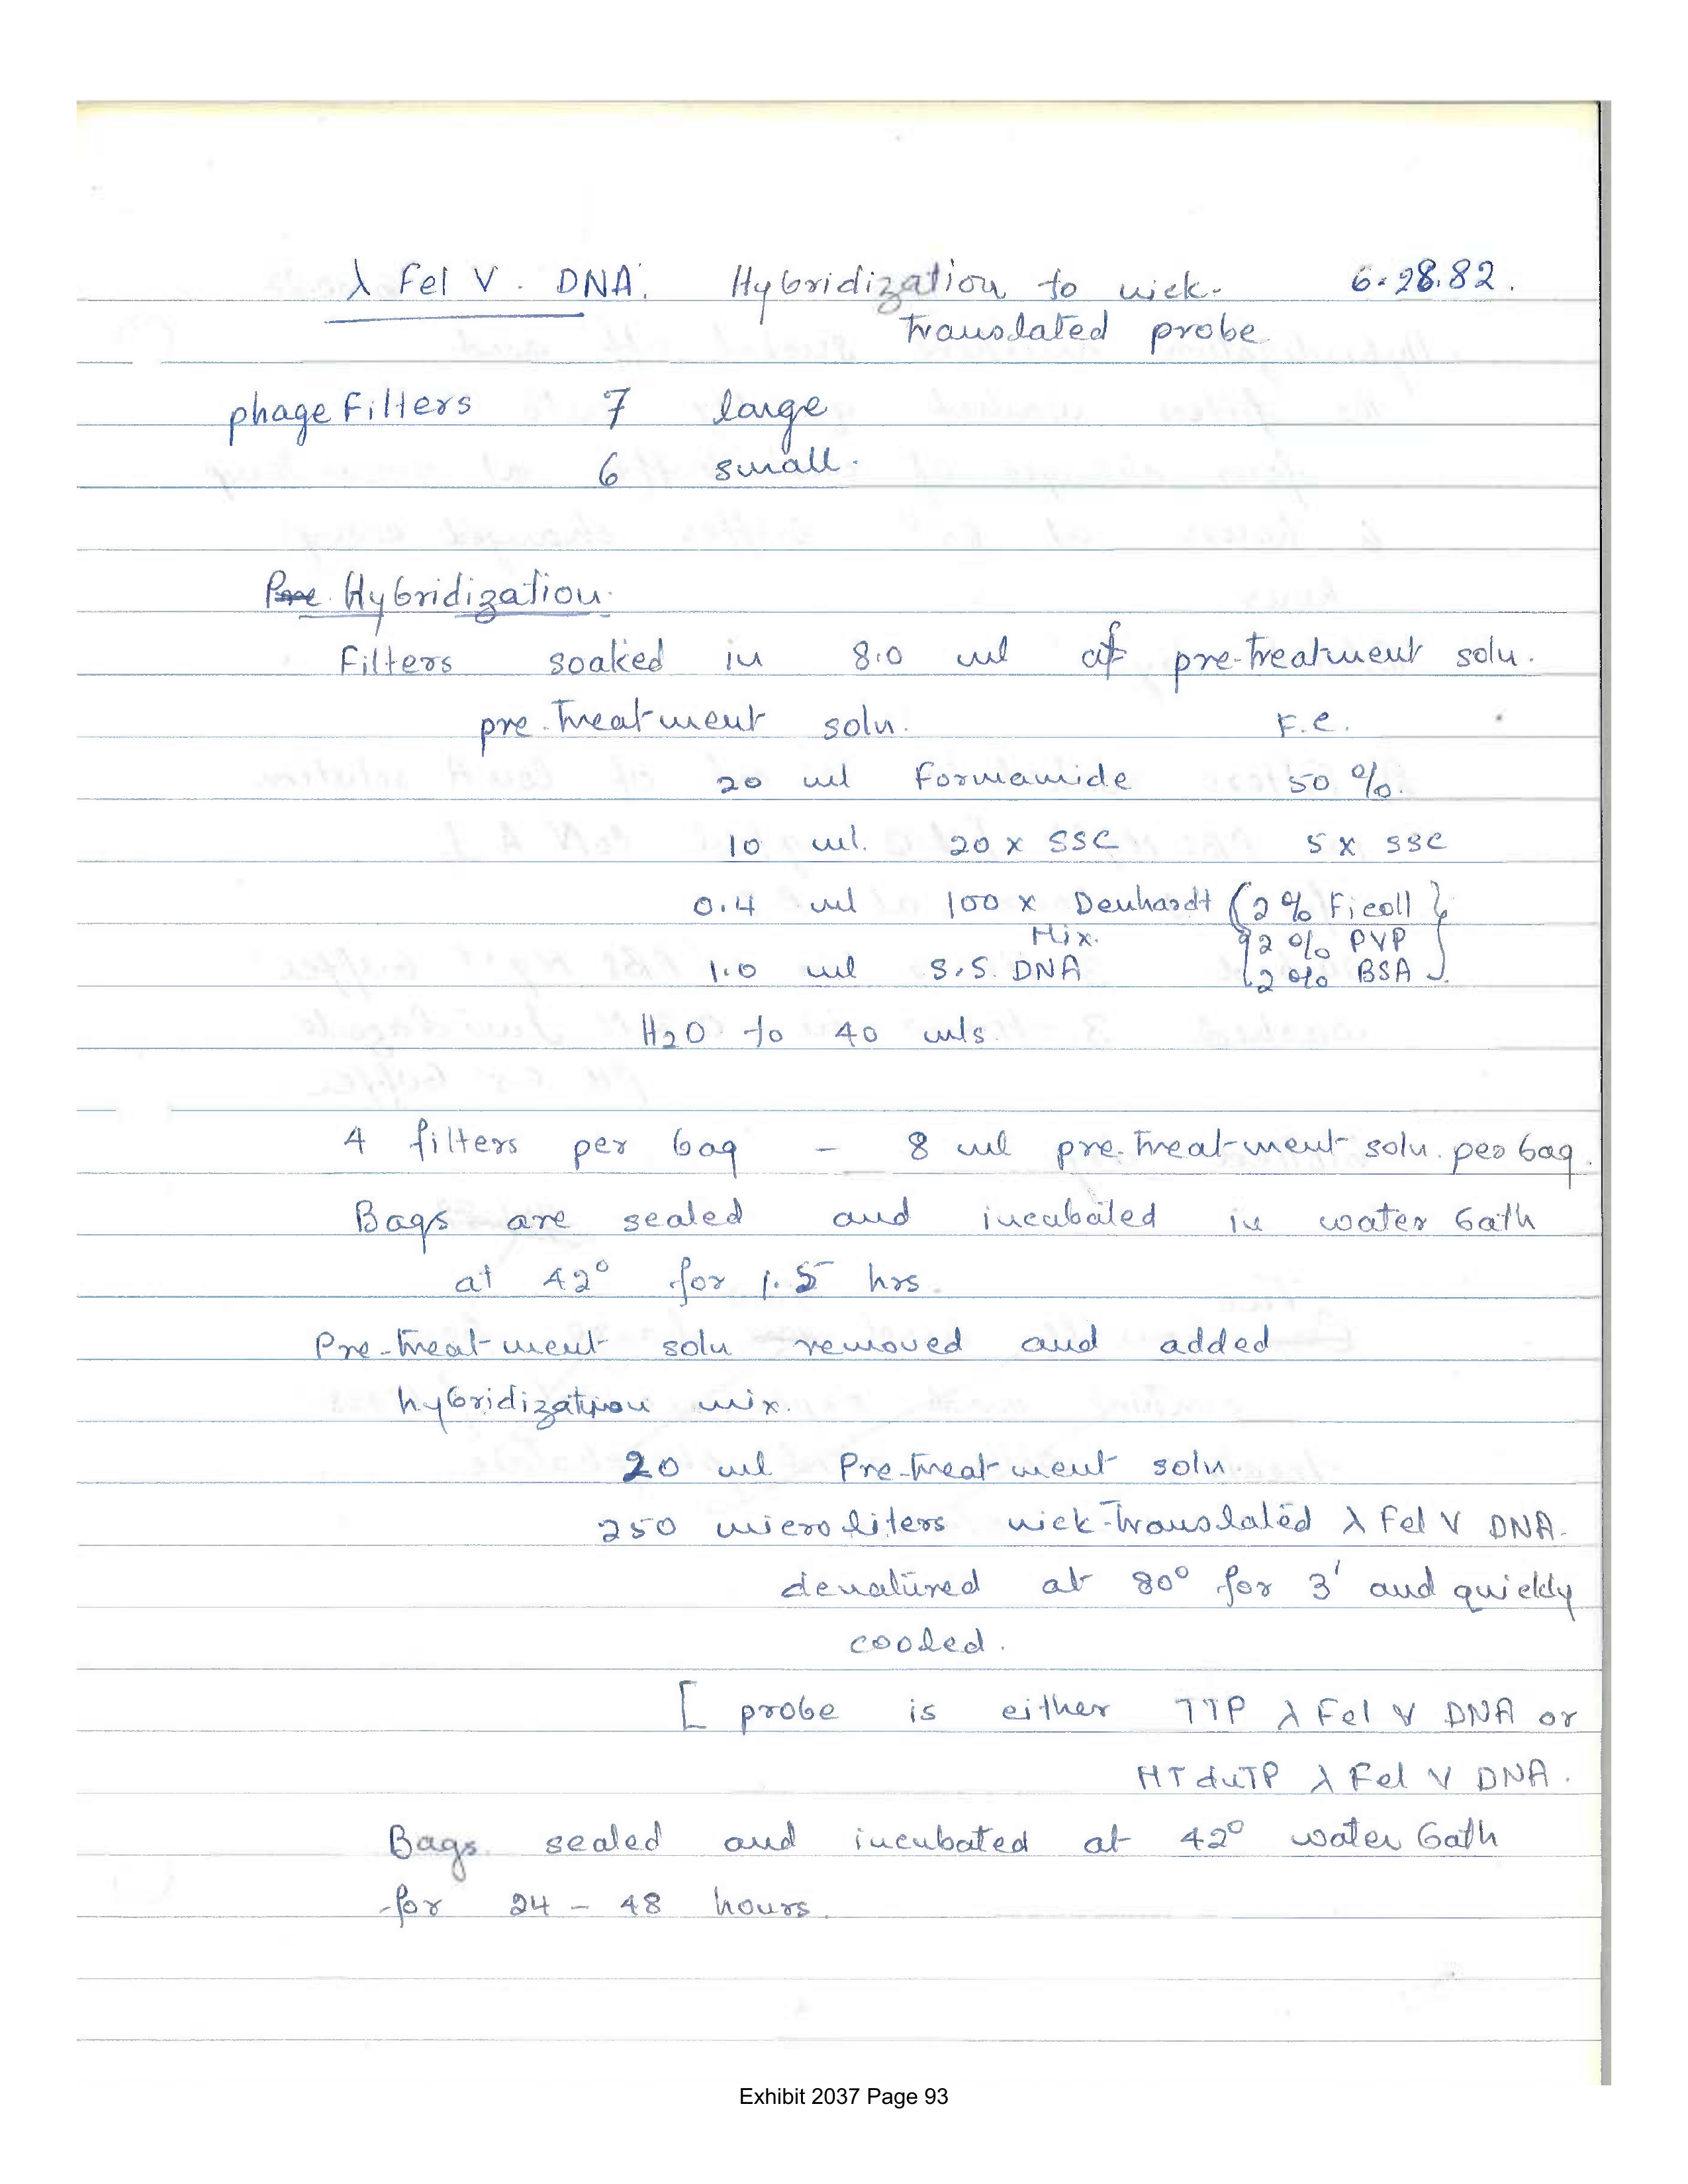 λ Fel V. DNA. Hybridization to nick- 6.28.82.
translated probe
phage Filters 7 large
6 small.
Pre Hybridization.
Filters soaked in 8.0 ml of pre-treatment soln.
pre-treatment soln. F.C.
20 ml Formamide 50 %.
10 ml. 20 x SSC 5 x SSC
0.4 ml 100 x Denhardt (2 % Ficoll }
Mix. {2 % PVP
1.0 ml S.S. DNA 2 % BSA
H2O to 40 mls.
4 filters per bag – 8 ml pre-treatment soln. per bag.
Bags are sealed and incubated in water bath
at 42° for 1.5 hrs.
Pre-treatment soln removed and added
hybridization mix.
20 ml Pre-treatment soln.
250 microliters nick-translated λ Fel V DNA.
denatured at 80° for 3' and quickly
cooled.
[ probe is either TTP λ Fel V DNA or
MTduTP λ Fel V DNA.
Bags sealed and incubated at 42° water bath
for 24 – 48 hours.
Exhibit 2037 Page 93